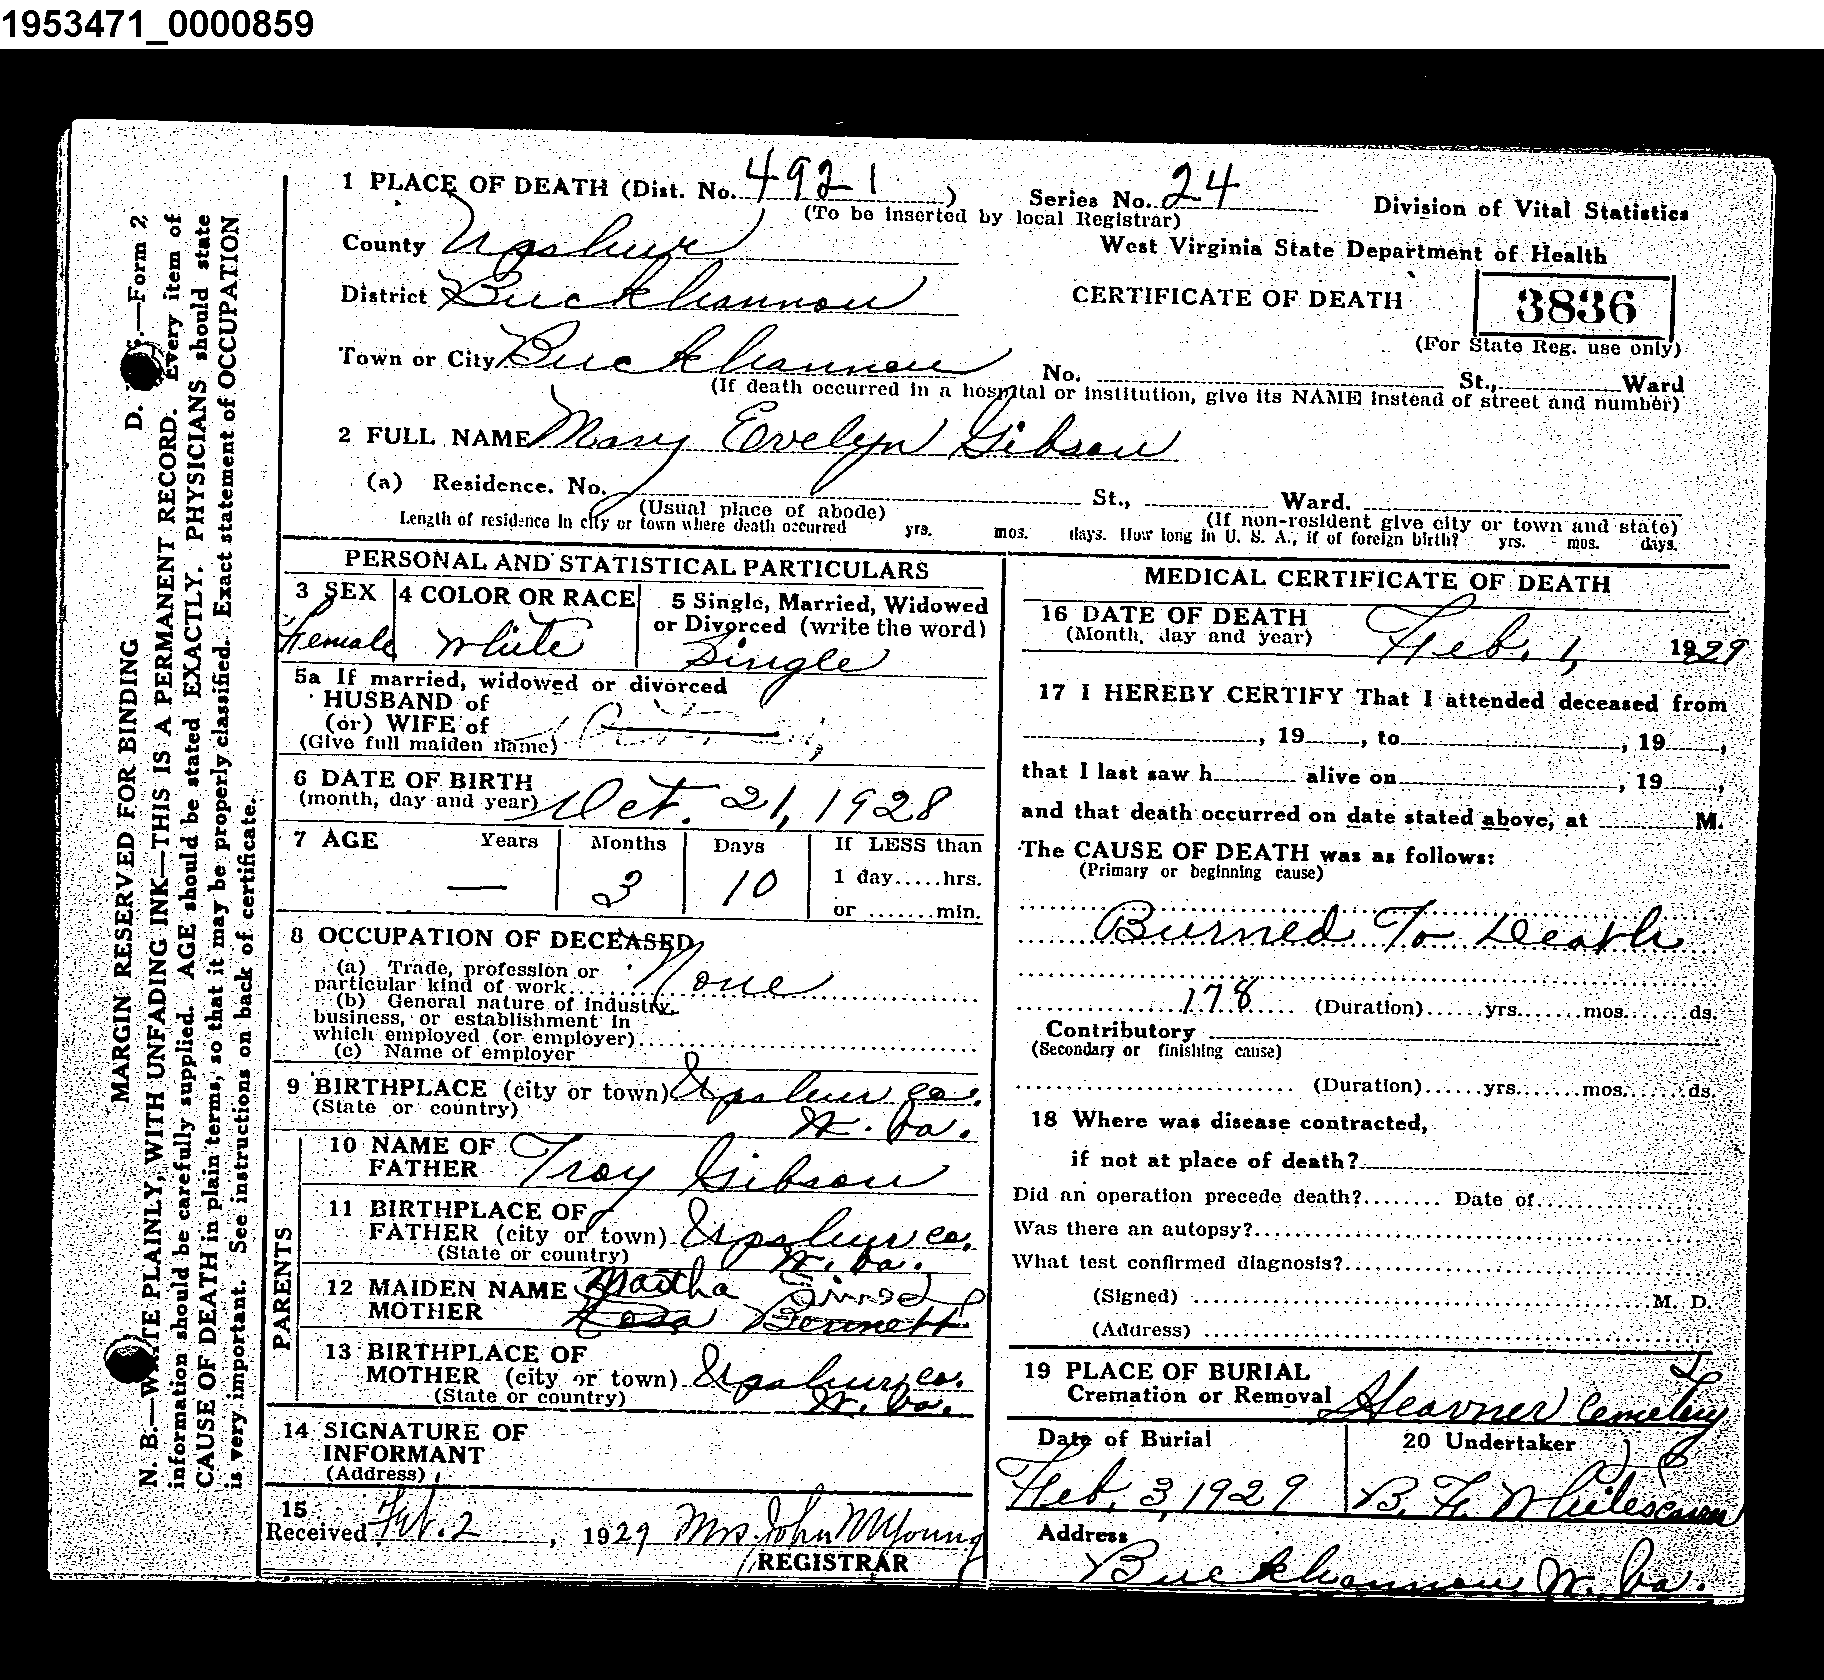 1953471_0000859
1 PLACE OF DEATH (Dist. No. 4921 ) Series No. 24 Division of Vital Statistics
(To be inserted by local Registrar)
County Upshur West Virginia State Department of Health
District Buckhannon CERTIFICATE OF DEATH 3836
(For State Reg. use only)
Town or City Buckhannon No. St., Ward
(If death occurred in a hospital or institution, give its NAME instead of street and number)
2 FULL NAME Mary Evelyn Gibson
(a) Residence. No. St., Ward.
(Usual place of abode) (If non-resident give city or town and state)
Length of residence in city or town where death occurred yrs. mos. days. How long in U. S. A., if of foreign birth? yrs. mos. days.
PERSONAL AND STATISTICAL PARTICULARS
3 SEX 4 COLOR OR RACE 5 Single, Married, Widowed
or Divorced (write the word)
Female White Single
5a If married, widowed or divorced
HUSBAND of
(or) WIFE of
(Give full maiden name)
6 DATE OF BIRTH
(month, day and year) Oct. 21, 1928
7 AGE Years Months Days If LESS than
— 3 10 1 day.....hrs.
or .......min.
8 OCCUPATION OF DECEASED
(a) Trade, profession or
particular kind of work None
(b) General nature of industry,
business, or establishment in
which employed (or employer)
(c) Name of employer
9 BIRTHPLACE (city or town) Upshur Co.
(State or country) W. Va.
PARENTS
10 NAME OF
FATHER Troy Gibson
11 BIRTHPLACE OF
FATHER (city or town) Upshur Co.
(State or country) W. Va.
12 MAIDEN NAME Martha
MOTHER Rosa Bennett
13 BIRTHPLACE OF
MOTHER (city or town) Upshur Co.
(State or country) W. Va.
14 SIGNATURE OF
INFORMANT
(Address)
15
Received Feb. 2, 1929 Mrs. John M Young
REGISTRAR
MEDICAL CERTIFICATE OF DEATH
16 DATE OF DEATH
(Month, day and year) Feb. 1, 1929
17 I HEREBY CERTIFY That I attended deceased from
, 19 , to , 19 ,
that I last saw h alive on , 19 ,
and that death occurred on date stated above, at M.
The CAUSE OF DEATH was as follows:
(Primary or beginning cause)
Burned To Death
178 (Duration) yrs. mos. ds.
Contributory
(Secondary or finishing cause)
(Duration) yrs. mos. ds.
18 Where was disease contracted,
if not at place of death?
Did an operation precede death? Date of
Was there an autopsy?
What test confirmed diagnosis?
(Signed) M. D.
(Address)
19 PLACE OF BURIAL
Cremation or Removal Heavner Cemetery
Date of Burial 20 Undertaker
Feb. 3, 1929 B. F. Whitescarver
Address
Buckhannon W. Va.
D. S.—Form 2
MARGIN RESERVED FOR BINDING
N. B.—WRITE PLAINLY, WITH UNFADING INK—THIS IS A PERMANENT RECORD. Every item of
information should be carefully supplied. AGE should be stated EXACTLY. PHYSICIANS should state
CAUSE OF DEATH in plain terms, so that it may be properly classified. Exact statement of OCCUPATION
is very important. See instructions on back of certificate.